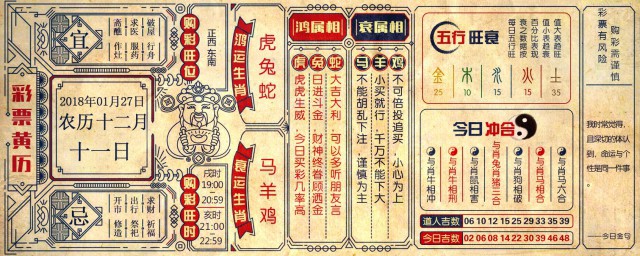 彩票黄历
宜
斋醮
作灶
求医
服药
破屋
行舟
2018年01月27日
农历十二月
十一日
忌
开市
修造
出行
祭祀
求财
祈福
购彩旺位
正西 东南
戌时
19:00
-
20:59
亥时
21:00
-
22:59
购彩旺时
鸿运生肖
虎兔蛇
衰运生肖
马羊鸡
鸿属相
虎兔蛇
大吉大利，可以多听朋友言
日进斗金，财神终眷顾洒金
虎虎生威，今日买彩几率高
衰属相
马羊鸡
不可倍投追买，小心为上
小买就行，千万不能下大
不能胡乱下注，谨慎为主
五行 旺衰
每日五行旺
衰之数据按
百分比表现
值小表趋衰
值大表趋旺
金 木 水 火 土
25 10 15 15 35
今日 冲合
与肖牛相冲
与肖牛相刑
与肖鼠相害
与肖狗相破
与肖兔肖猪三合
与肖马相合
与肖马六合
道人吉数 06 10 12 15 25 29 33 35 39
今日吉数 02 06 08 14 16 23 29 46 48
彩票有风险
购彩需谨慎
我时常觉得，
且深切的体认
到，命运与个
性是同一件事
。
——今日金句